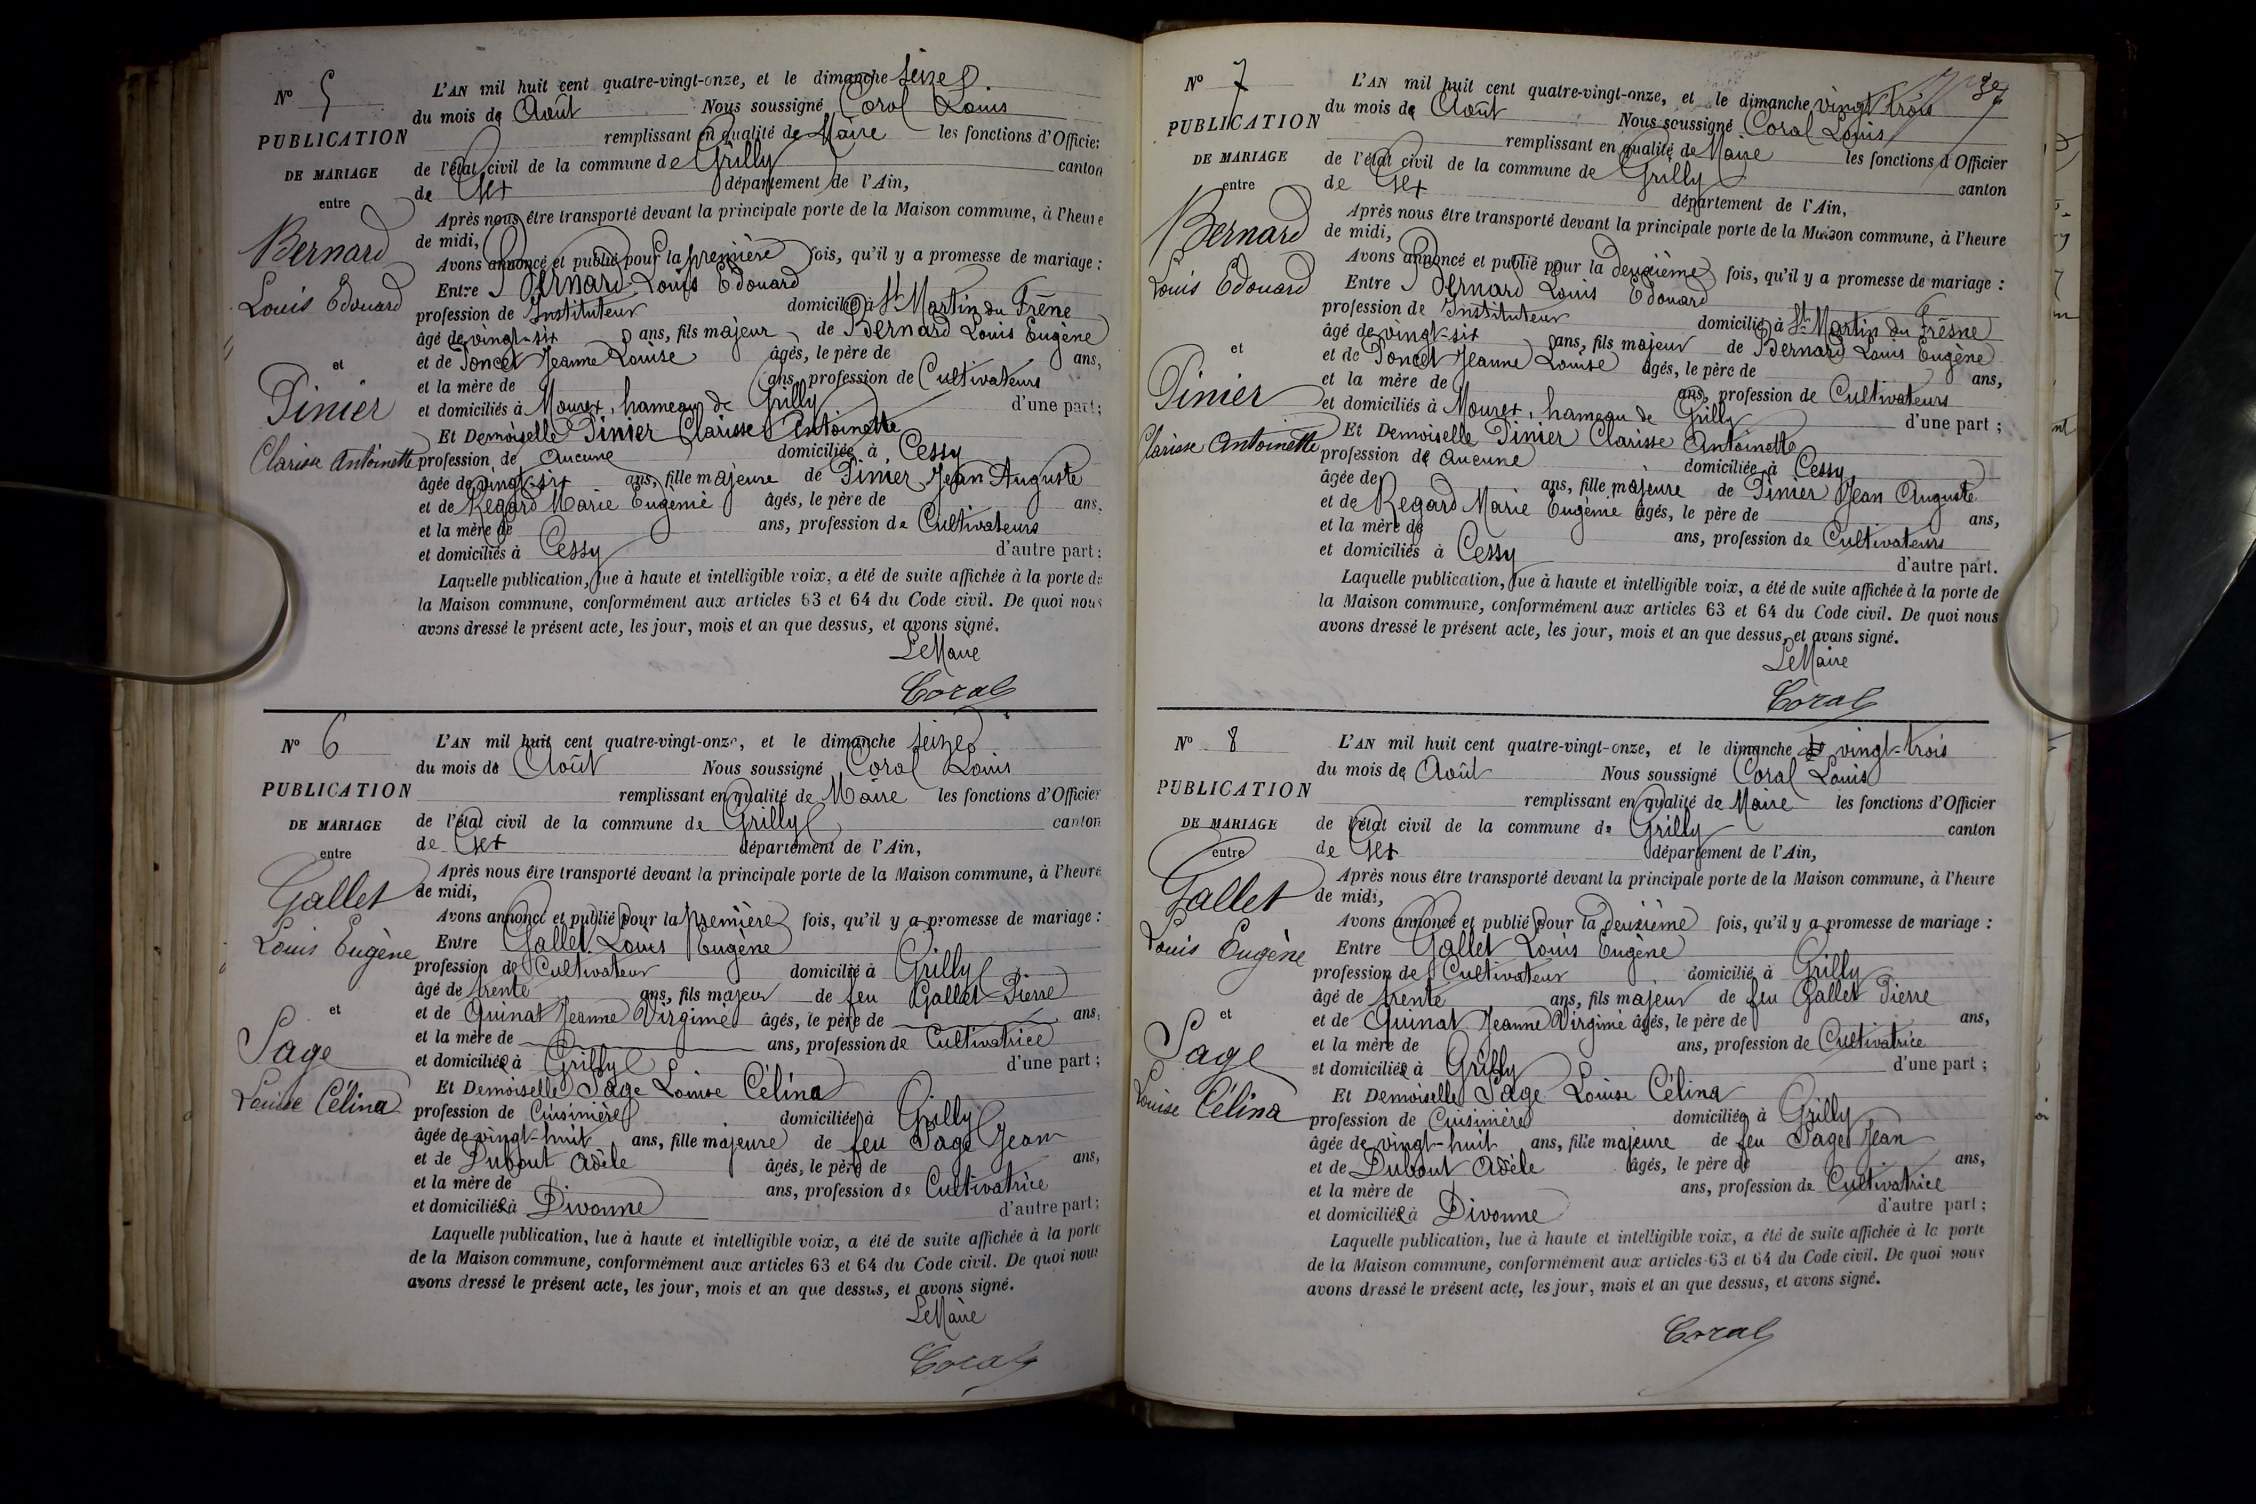 N° 5
PUBLICATION
DE MARIAGE
entre
Bernard
Louis Edouard
et
Pinier
Clarisse Antoinette
L'AN mil huit cent quatre-vingt-onze, et le dimanche seize
du mois de Août Nous soussigné Coral Louis
remplissant en qualité de Maire les fonctions d'Officier
de l'état civil de la commune de Grilly canton
de Gex département de l'Ain,
Après nous être transporté devant la principale porte de la Maison commune, à l'heure
de midi,
Avons annoncé et publié pour la première fois, qu'il y a promesse de mariage :
Entre Bernard Louis Edouard
profession de Instituteur domicilié à St Martin du Frêne
âgé de vingt-six ans, fils majeur de Bernard Louis Eugène
et de Poncet Jeanne Louise âgés, le père de ans,
et la mère de ans, profession de Cultivateurs
et domiciliés à Mourex, hameau de Grilly d'une part;
Et Demoiselle Pinier Clarisse Antoinette
profession de aucune domiciliée à Cessy
âgée de vingt-six ans, fille majeure de Pinier Jean Auguste
et de Regard Marie Eugénie âgés, le père de ans,
et la mère de ans, profession de Cultivateurs
et domiciliés à Cessy d'autre part:
Laquelle publication, lue à haute et intelligible voix, a été de suite affichée à la porte de
la Maison commune, conformément aux articles 63 et 64 du Code civil. De quoi nous
avons dressé le présent acte, les jour, mois et an que dessus, et avons signé.
Le Maire
Coral
N° 6
PUBLICATION
DE MARIAGE
entre
Gallet
Louis Eugène
et
Sage
Louise Célina
L'AN mil huit cent quatre-vingt-onze, et le dimanche seize
du mois de Août Nous soussigné Coral Louis
remplissant en qualité de Maire les fonctions d'Officier
de l'état civil de la commune de Grilly canton
de Gex département de l'Ain,
Après nous être transporté devant la principale porte de la Maison commune, à l'heure
de midi,
Avons annoncé et publié pour la première fois, qu'il y a promesse de mariage :
Entre Gallet Louis Eugène
profession de Cultivateur domicilié à Grilly
âgé de trente ans, fils majeur de feu Gallet Pierre
et de Quinat Jeanne Virginie âgés, le père de ans,
et la mère de ans, profession de Cultivatrice
et domiciliée à Grilly d'une part ;
Et Demoiselle Sage Louise Célina
profession de Cuisinière domiciliée à Grilly
âgée de vingt-huit ans, fille majeure de feu Sage Jean
et de Dubout Adèle âgés, le père de ans,
et la mère de ans, profession de Cultivatrice
et domiciliée à Divonne d'autre part;
Laquelle publication, lue à haute et intelligible voix, a été de suite affichée à la porte
de la Maison commune, conformément aux articles 63 et 64 du Code civil. De quoi nous
avons dressé le présent acte, les jour, mois et an que dessus, et avons signé.
Le Maire
Coral
N° 7
PUBLICATION
DE MARIAGE
entre
Bernard
Louis Edouard
et
Pinier
Clarisse Antoinette
L'AN mil huit cent quatre-vingt-onze, et le dimanche vingt trois
du mois de Août Nous soussigné Coral Louis
remplissant en qualité de Maire les fonctions d'Officier
de l'état civil de la commune de Grilly canton
de Gex département de l'Ain,
Après nous être transporté devant la principale porte de la Maison commune, à l'heure
de midi,
Avons annoncé et publié pour la deuxième fois, qu'il y a promesse de mariage :
Entre Bernard Louis Edouard
profession de Instituteur domicilié à St Martin du Frêsne
âgé de vingt-six ans, fils majeur de Bernard Louis Eugène
et de Poncet Jeanne Louise âgés, le père de ans,
et la mère de ans, profession de Cultivateurs
et domiciliés à Mourex, hameau de Grilly d'une part ;
Et Demoiselle Pinier Clarisse Antoinette
profession de aucune domiciliée à Cessy
âgée de ans, fille majeure de Pinier Jean Auguste
et de Regard Marie Eugénie âgés, le père de ans,
et la mère de ans, profession de Cultivateurs
et domiciliés à Cessy d'autre part.
Laquelle publication, lue à haute et intelligible voix, a été de suite affichée à la porte de
la Maison commune, conformément aux articles 63 et 64 du Code civil. De quoi nous
avons dressé le présent acte, les jour, mois et an que dessus, et avons signé.
Le Maire
Coral
N° 8
PUBLICATION
DE MARIAGE
entre
Gallet
Louis Eugène
et
Sage
Louise Célina
L'AN mil huit cent quatre-vingt-onze, et le dimanche vingt-trois
du mois de Août Nous soussigné Coral Louis
remplissant en qualité de Maire les fonctions d'Officier
de l'état civil de la commune de Grilly canton
de Gex département de l'Ain,
Après nous être transporté devant la principale porte de la Maison commune, à l'heure
de midi,
Avons annoncé et publié pour la deuxième fois, qu'il y a promesse de mariage :
Entre Gallet Louis Eugène
profession de Cultivateur domicilié à Grilly
âgé de trente ans, fils majeur de feu Gallet Pierre
et de Quinat Jeanne Virginie âgés, le père de ans,
et la mère de ans, profession de Cultivatrice
et domiciliée à Grilly d'une part ;
Et Demoiselle Sage Louise Célina
profession de Cuisinière domiciliée à Grilly
âgée de vingt-huit ans, fille majeure de feu Sage Jean
et de Dubout Adèle âgés, le père de ans,
et la mère de ans, profession de Cultivatrice
et domiciliée à Divonne d'autre part ;
Laquelle publication, lue à haute et intelligible voix, a été de suite affichée à la porte
de la Maison commune, conformément aux articles 63 et 64 du Code civil. De quoi nous
avons dressé le présent acte, les jour, mois et an que dessus, et avons signé.
Coral